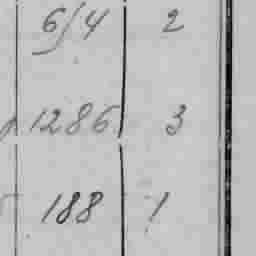 614 2
1286 3
188 1